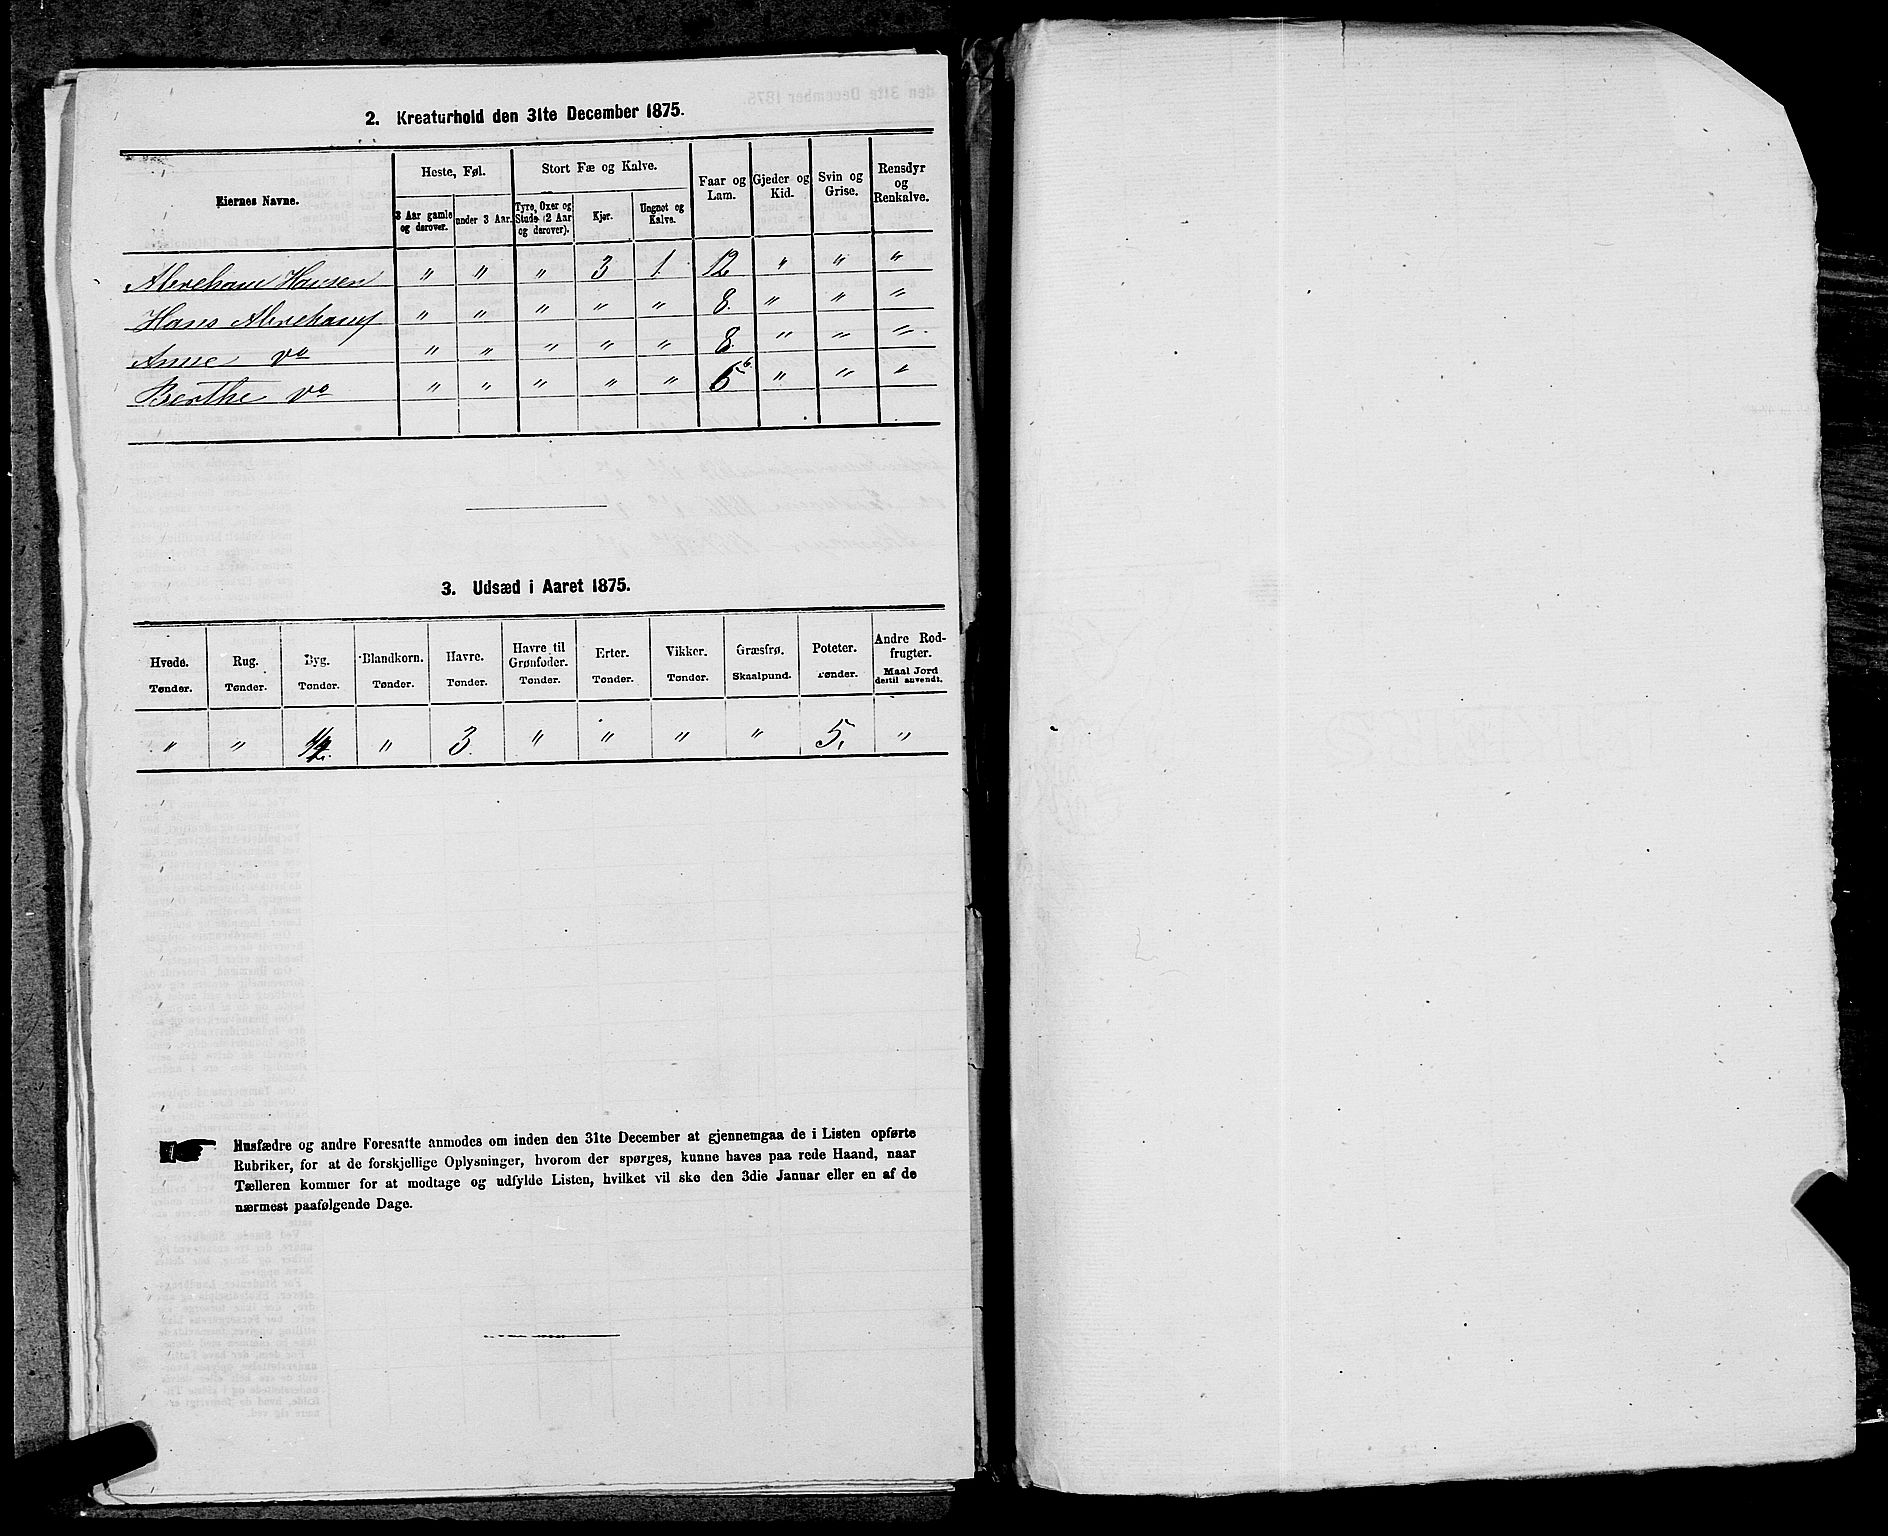 2. Kreaturhold den 31te December 1875.
Eiernes Navne.
Heste, Føl.
Stort Fæ og Kalve.
Faar og Lam.
Gjeder og Kid.
Svin og Grise.
Rensdyr og Renkalve.
3 Aar gamle og derover.
under 3 Aar.
Tyre, Oxer og Stude (2 Aar og derover).
Kjør.
Ungnøt og Kalve.
Abreham Hansen " " " 3 1. 12 " " "
Hans Abrehams " " " " " 8. " " "
Anne do " " " " " 8. " " "
Berthe do " " " " " 6 " " "
3. Udsæd i Aaret 1875.
Hvede. Tønder.
Rug. Tønder.
Byg. Tønder.
Blandkorn. Tønder.
Havre. Tønder.
Havre til Grønfoder. Tønder.
Erter. Tønder.
Vikker. Tønder.
Græsfrø. Skaalpund.
Poteter. Tønder.
Andre Rodfrugter. Maal Jord dertil anvendt.
" " 1/2. " 3. " " " " 5. "
Husfædre og andre Foresatte anmodes om inden den 31te December at gjennemgaa de i Listen opførte
Rubriker, for at de forskjellige Oplysninger, hvorom der spørges, kunne haves paa rede Haand, naar
Tælleren kommer for at modtage og udfylde Listen, hvilket vil ske den 3die Januar eller en af de
nærmest paafølgende Dage.